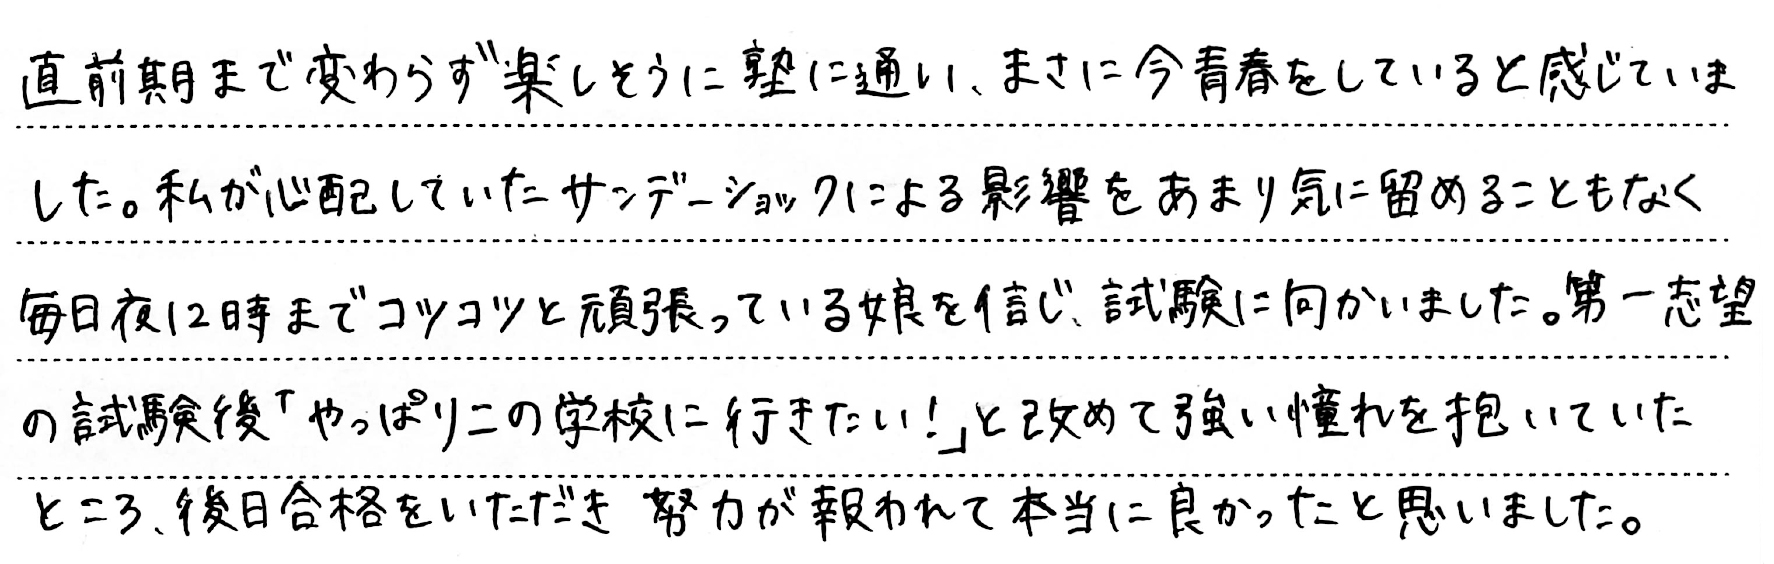 直前期まで変わらず楽しそうに塾に通い、まさに今青春をしていると感じていま
した。私が心配していたサンデーショックによる影響をあまり気に留めることもなく
毎日夜12時までコツコツと頑張っている娘を信じ、試験に向かいました。第一志望
の試験後「やっぱりこの学校に行きたい!」と改めて強い憧れを抱いていた
ところ、後日合格をいただき 努力が報われて本当に良かったと思いました。